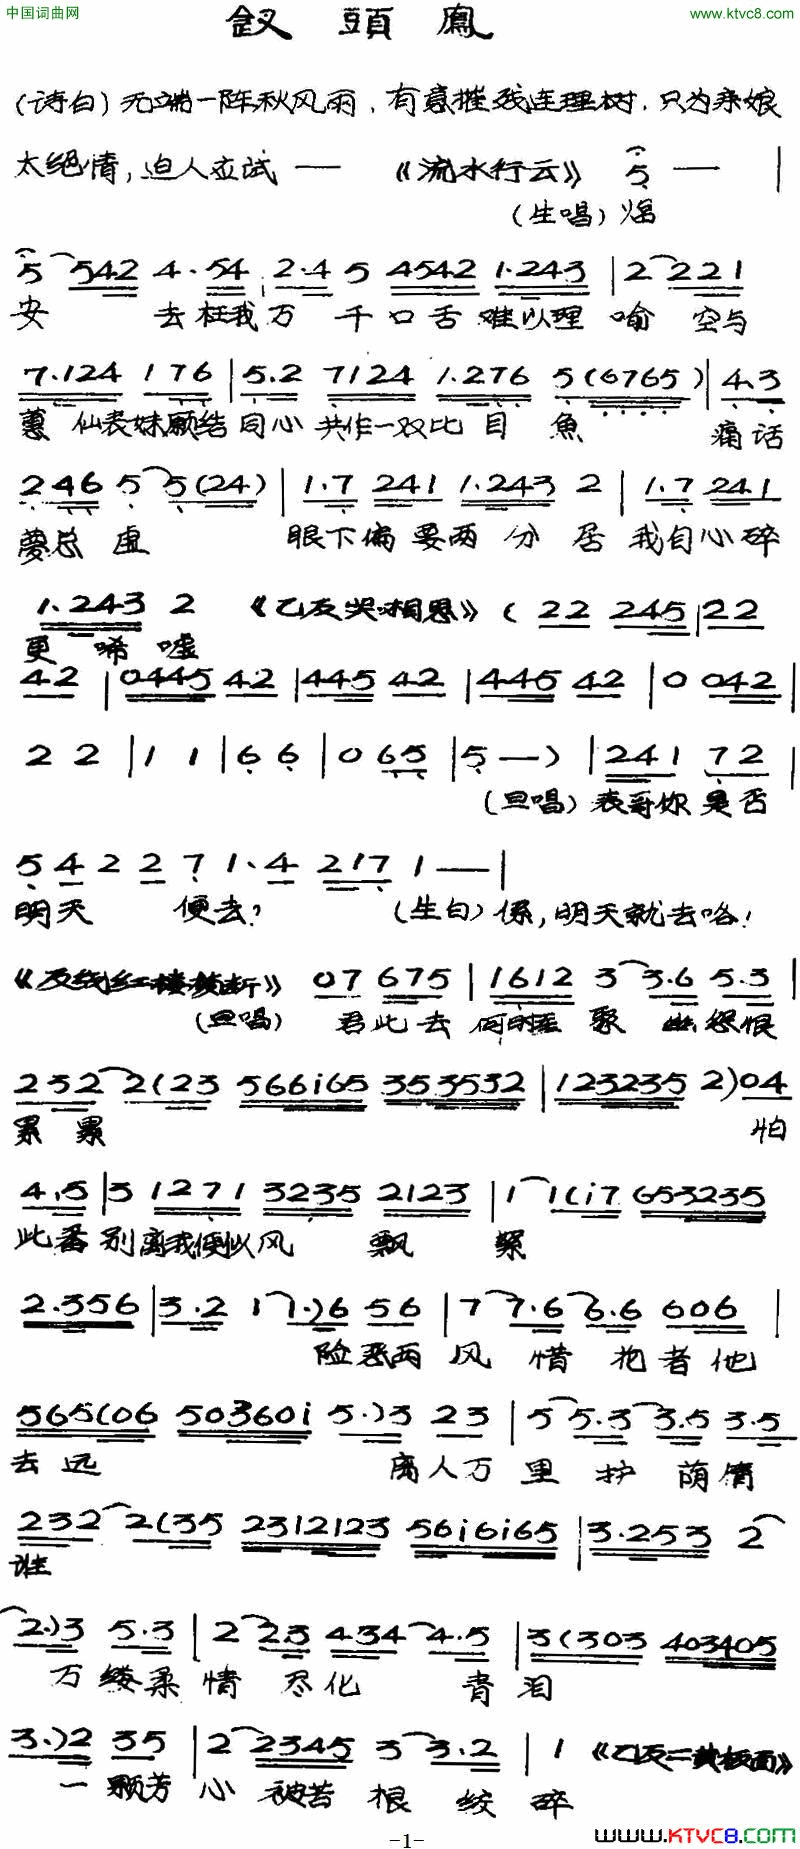 中国词曲网
www.ktvc8.com
釵頭鳳
(诗白)无端一阵秋风雨，有意摧残连理树．只为亲娘
太绝情，迫人应试—— 《流水行云》 5 — |
(生唱)
5 542 4·54 2·4 5 4542 1·243 | 2 221
安 去枉我万 千口舌难以理 喻 空与
7·124 176 | 5·2 7124 1·276 5(6765) | 4·3
蕙仙表妹愿结同心共作一双比目 魚 痛话
246 5 5(24) | 1·7 241 1·243 2 | 1·7 241
夢总虚 眼下偏要两分居 我自心碎
1·243 2 《乙反哭相思》 (22 245 | 22
更唏嘘
42 | 0445 42 | 445 42 | 445 42 | 0 042 |
2 2 | 1 1 | 6 6 | 0 65 | 5 — ) | 241 72 |
(旦唱)表哥你是否
5 4 2 2 7 1·4 217 1 — |
明天 便去? (生白)係,明天就去咯!
《反线红楼 》 07 675 | 1612 3 3·6 5·3 |
(旦唱) 君此去何时 聚 怨恨
232 2(23 566i65 353532 | 123235 2)04
累累 怕
4·5 | 3 1271 3235 2123 | 1 1(i7 653235
此番别离我便似风 飘 絮
2·356 | 3·2 1 1·)6 56 | 7 7·6 6·6 606 |
险恶两风 惜 者他
565(06 50360i 5·)3 23 | 5 5·3 3·5 3·5
去远 离人万里护 荫
232 2(35 2312123 56i6i65 | 3·253 2
谁
2·)3 5·3 | 2 2·3 434 4·5 | 3(303 403405
万缕柔情 尽化 泪
3·)2 35 | 2 2345 3 3·2 | 1 《乙反二黄板面》
一颗芳心被苦恨绞碎
-1-
www.KTVC8.com